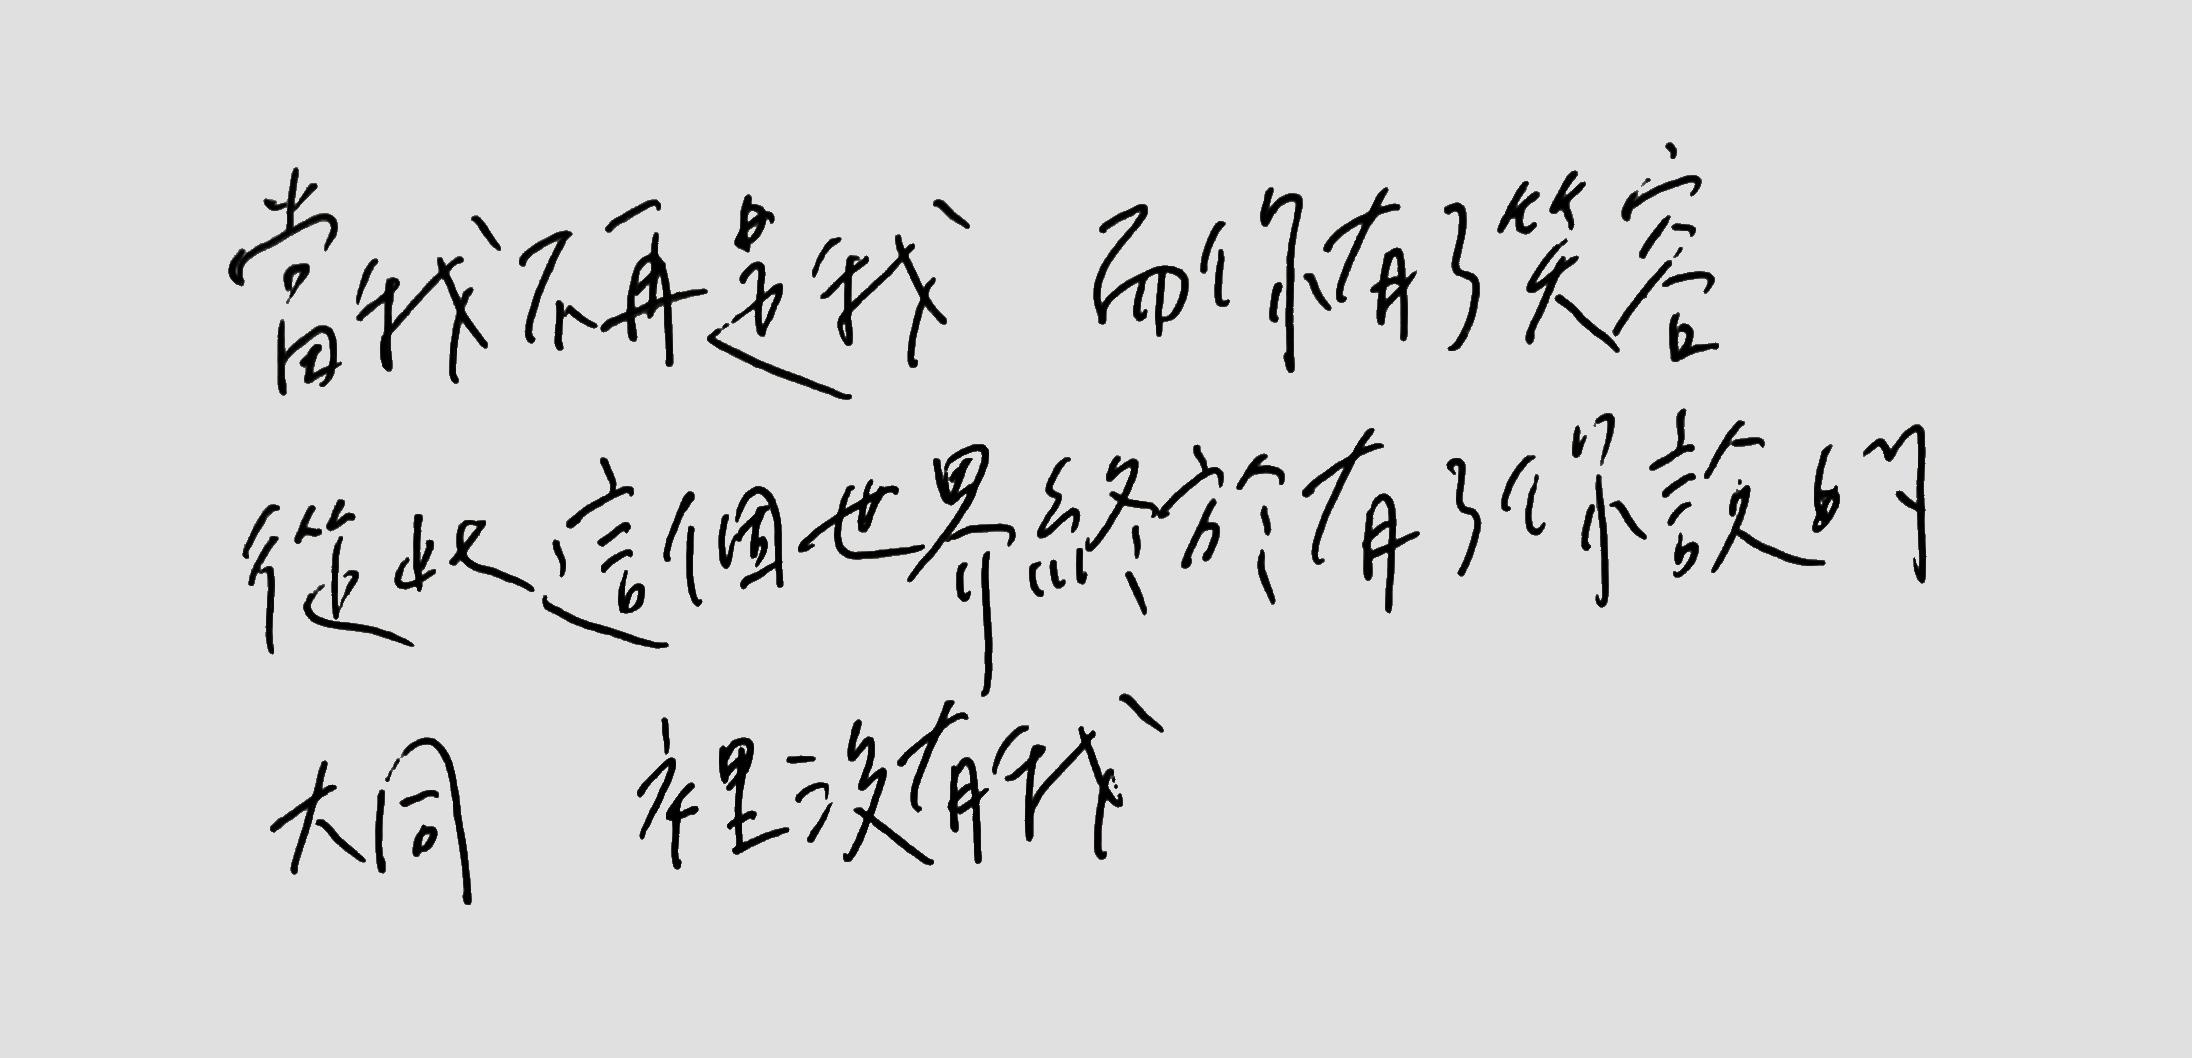 當我不再是我 而你有了笑容
從此這個世界終於有了你說的
大同 裡沒有我